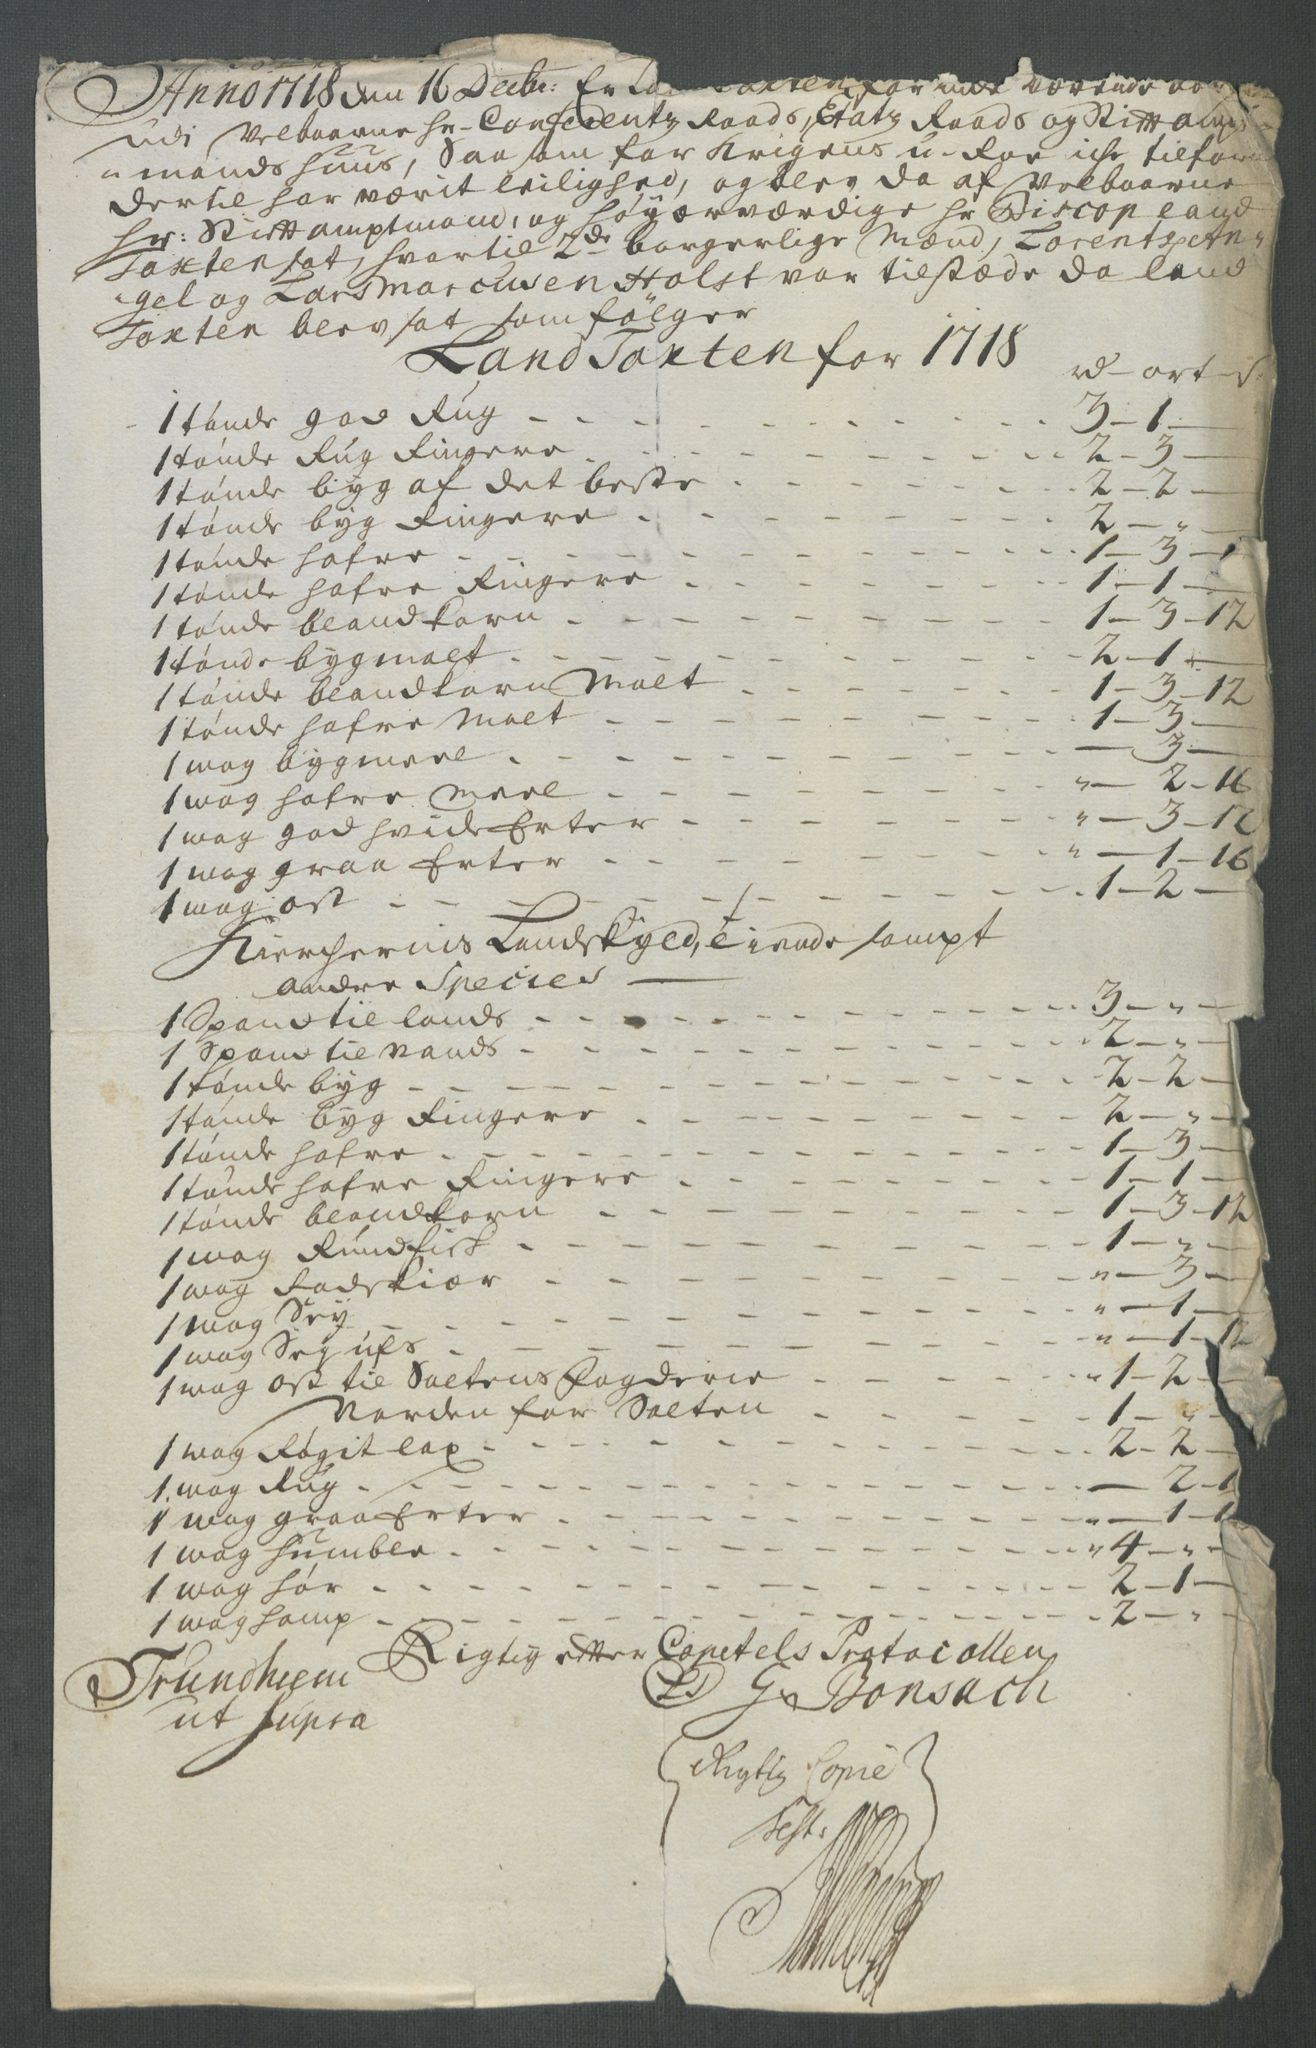 Anno 1718 den 16 Decbr: Er Land Taxten for nest værende aar
udi Velbaarne hr Conferentz Raads, Etatz Raads og Stiftampt
mands huus, Saasom for Krigens u-roe iche tilforn
dertil har værit leilighed, og blev da af Velbaarne
hr: Stiftamptmand, og høyærværdige hr Biscop Land
Taxten sat, hvortil 2de borgerlige Mænd, Lorentz An-
gel og Lars Marcusen Holst var tilstæde da land
Taxten blev sat som følger
Land Taxten for 1718
rd - ort - s
1 tønde god Rug - - - 3 - 1 -
1 tønde Rug Ringere - - - 2 - 3 -
1 tønde byg af det beste - - - 2 - 2 -
1 tønde byg Ringere - - - 2 - " -
1 tønde hafre - - - 1 - 3 -
1 tønde hafre Ringere - - - 1 - 1 -
1 tønde blandkorn - - - 1 - 3 - 12
1 tønde bygmalt - - - 2 - 1 -
1 tønde blandkorn Malt - - - 1 - 3 - 12
1 tønde hafre Malt - - - 1 - 3 -
1 wog bygmeel - - - — 3 -
1 wog hafre Meel - - - " - 2 - 16
1 wog god hvide Erter - - - " - 3 - 12
1 wog graa Erter - - - " - 1 - 16
1 wog ost - - - 1 - 2 -
Kierchernis Landskyld, tiende sampt
andre Species
1 Spand til lands - - - 3 - " -
1 Spand til Vands - - - 2 - " -
1 tønde byg - - - 2 - 2 -
1 tønde byg Ringere - - - 2 - " -
1 tønde hafre - - - 1 - 3 -
1 tønde hafre Ringere - - - 1 - 1 -
1 tønde blandkorn - - - 1 - 3 - 12
1 wog Rundfisk - - - 1 - " -
1 wog Rodskiær - - - " - 3 -
1 wog Sey - - - " - 1 -
1 wog Sey ufs - - - " - 1 - 12
1 wog ost til Saltens Fogderie - - - " 1 - 2 -
Norden for Salten - - - 1 - " -
1 wog Røgit lax - - - 2 - 2 -
1 wog Rug - - - — 2 - 1
1 wog graa Erter - - - " - 1 - 1
1 wog humble - - - " 4 - " -
1 wog hør - - - 2 - 1 -
1 wog hamp - - - 2 - " -
Rigtig efter Capitels Protocollen
Trundhiem
ut supra
LS G Bonsach
Rigtig Copie
Test: